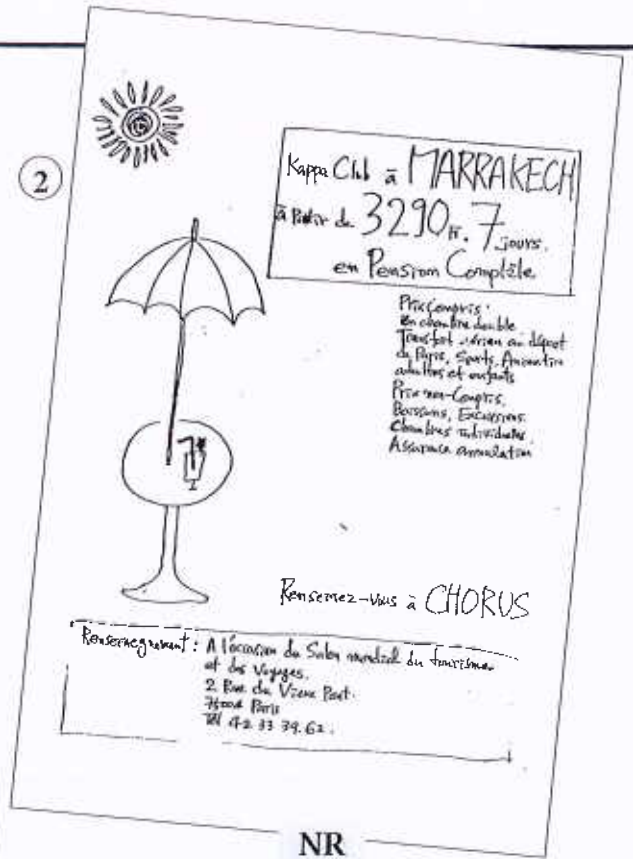 2
Kappa Club à MARRAKECH
à Partir de 3290 Fr. 7 jours.
en Pension Complète
Prix Compris :
En chambre double
Transport aérien au départ
de Paris, Sports, Animation
adultes et enfants
Prix non-Compris.
Boissons, Excursions.
Chambres individuelles.
Assurance annulation
à CHORUS
A l'occasion du Salon mondial du tourisme
et des Voyages.
2 Rue du Vieux Pont.
Paris
Tél 42 33 39.62.
NR